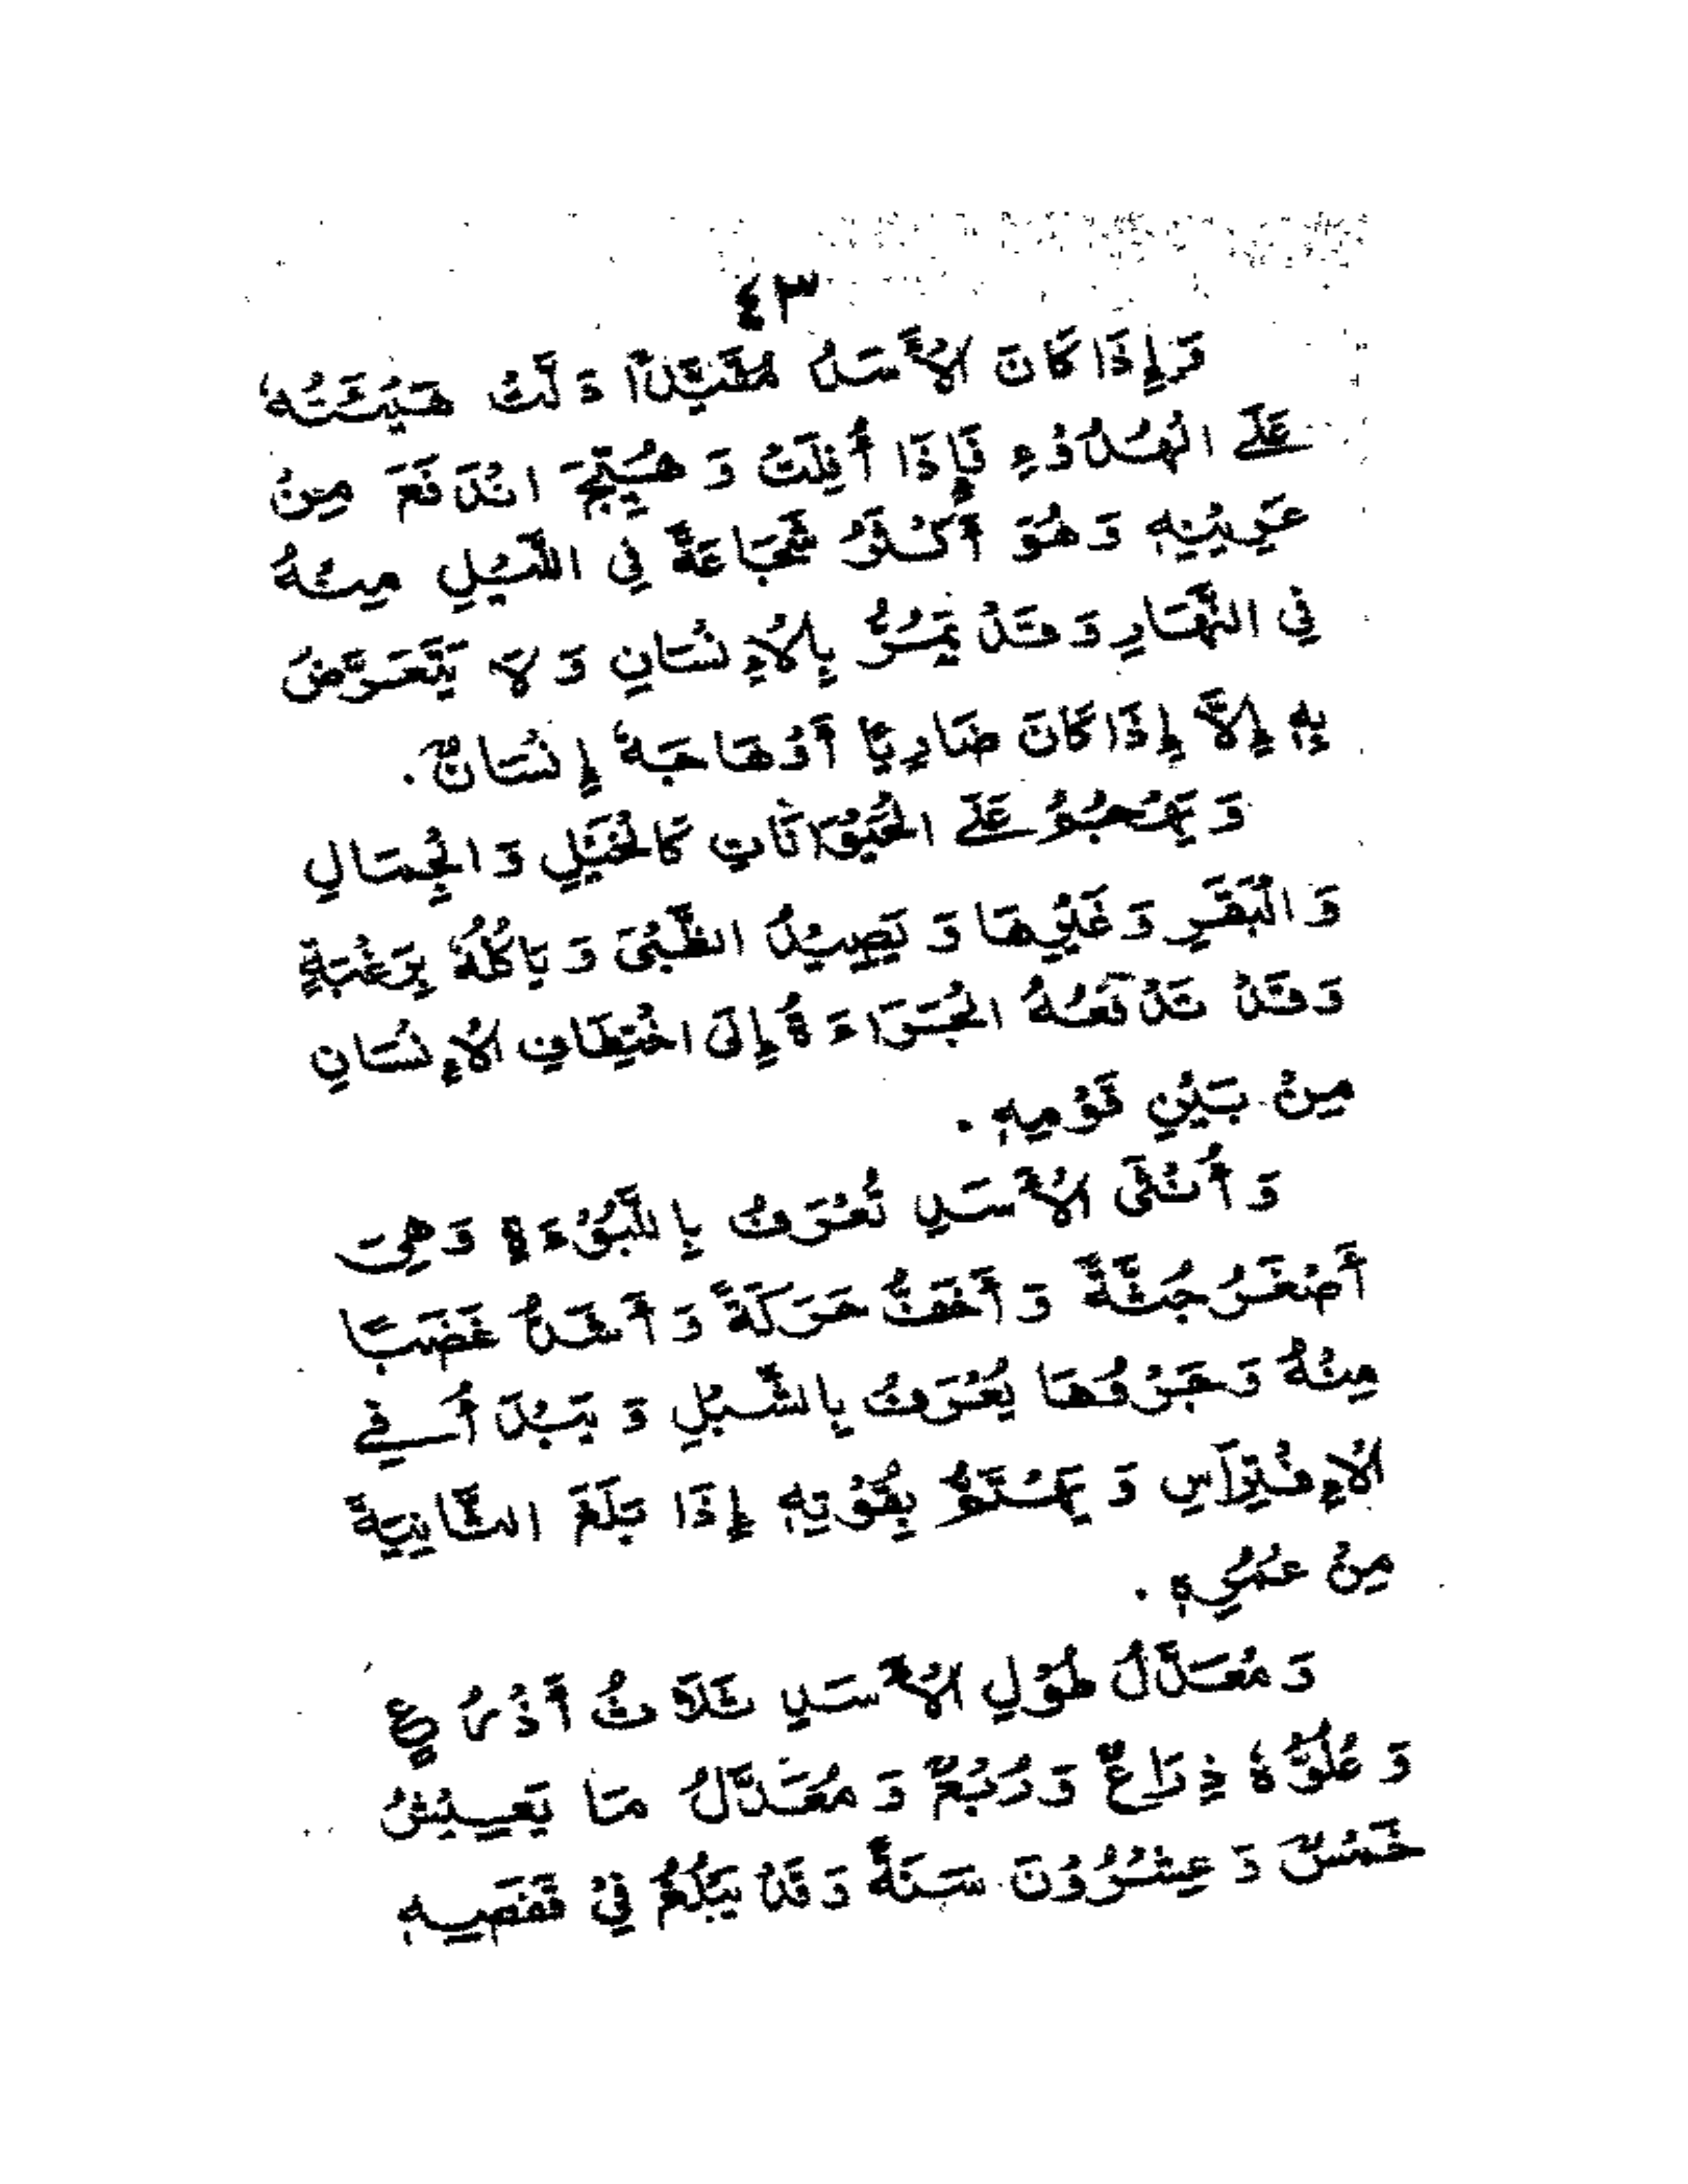 ٤٣
وَإِذَا كَانَ الْأَسَدُ مُقَيَّدًا دَلَّتْ هَيْئَتُهُ
عَلَى الْهُدُوْءِ فَإِذَا أُفْلِتَ وَهُيِّجَ انْدَفَعَ مِنْ
عَرِيْنِهِ وَهُوَ أَكْثَرُ شَجَاعَةً فِي اللَّيْلِ مِنْهُ
فِي النَّهَارِ وَقَدْ يَمُرُّ بِالْإِنْسَانِ وَلَا يَتَعَرَّضُ
بِهِ إِلَّا إِذَا كَانَ ضَارِيًا أَوْ هَاجَهُ إِنْسَانٌ.
وَيَهْجُمُ عَلَى الْحَيْوَانَاتِ كَالْخَيْلِ وَالْجِمَالِ
وَالْبَقَرِ وَغَيْرِهَا وَيَصِيْدُ الظَّبْيَ وَيَاكُلُهُ بِرَغْبَةٍ
وَقَدْ تَدْفَعُهُ الْجَرَاءَةُ إِلَى اخْتِطَافِ الْإِنْسَانِ
مِنْ بَيْنِ قَوْمِهِ.
وَأُنْثَى الْأَسَدِ تُعْرَفُ بِاللَّبُؤَةِ وَهِيَ
أَصْغَرُ جُثَّةً وَأَخَفُّ حَرَكَةً وَأَشَدُّ غَضَبًا
مِنْهُ وَجَرْوُهَا يُعْرَفُ بِالشِّبْلِ وَيَبْدَأُ فِي
الْإِفْتِرَاسِ وَيَهْتَزُّ بِقُوَّتِهِ إِذَا بَلَغَ الثَّانِيَةَ
مِنْ عُمْرِهِ.
وَمُعَدَّلُ طُوْلِ الْأَسَدِ ثَلَاثُ أَذْرُعٍ
وَعُلُوُّهُ ذِرَاعٌ وَرُبْعٌ وَمُعَدَّلُ مَا يَعِيْشُ
خَمْسٌ وَعِشْرُوْنَ سَنَةً وَقَدْ يَبْلُغُ فِي قَفَصِهِ